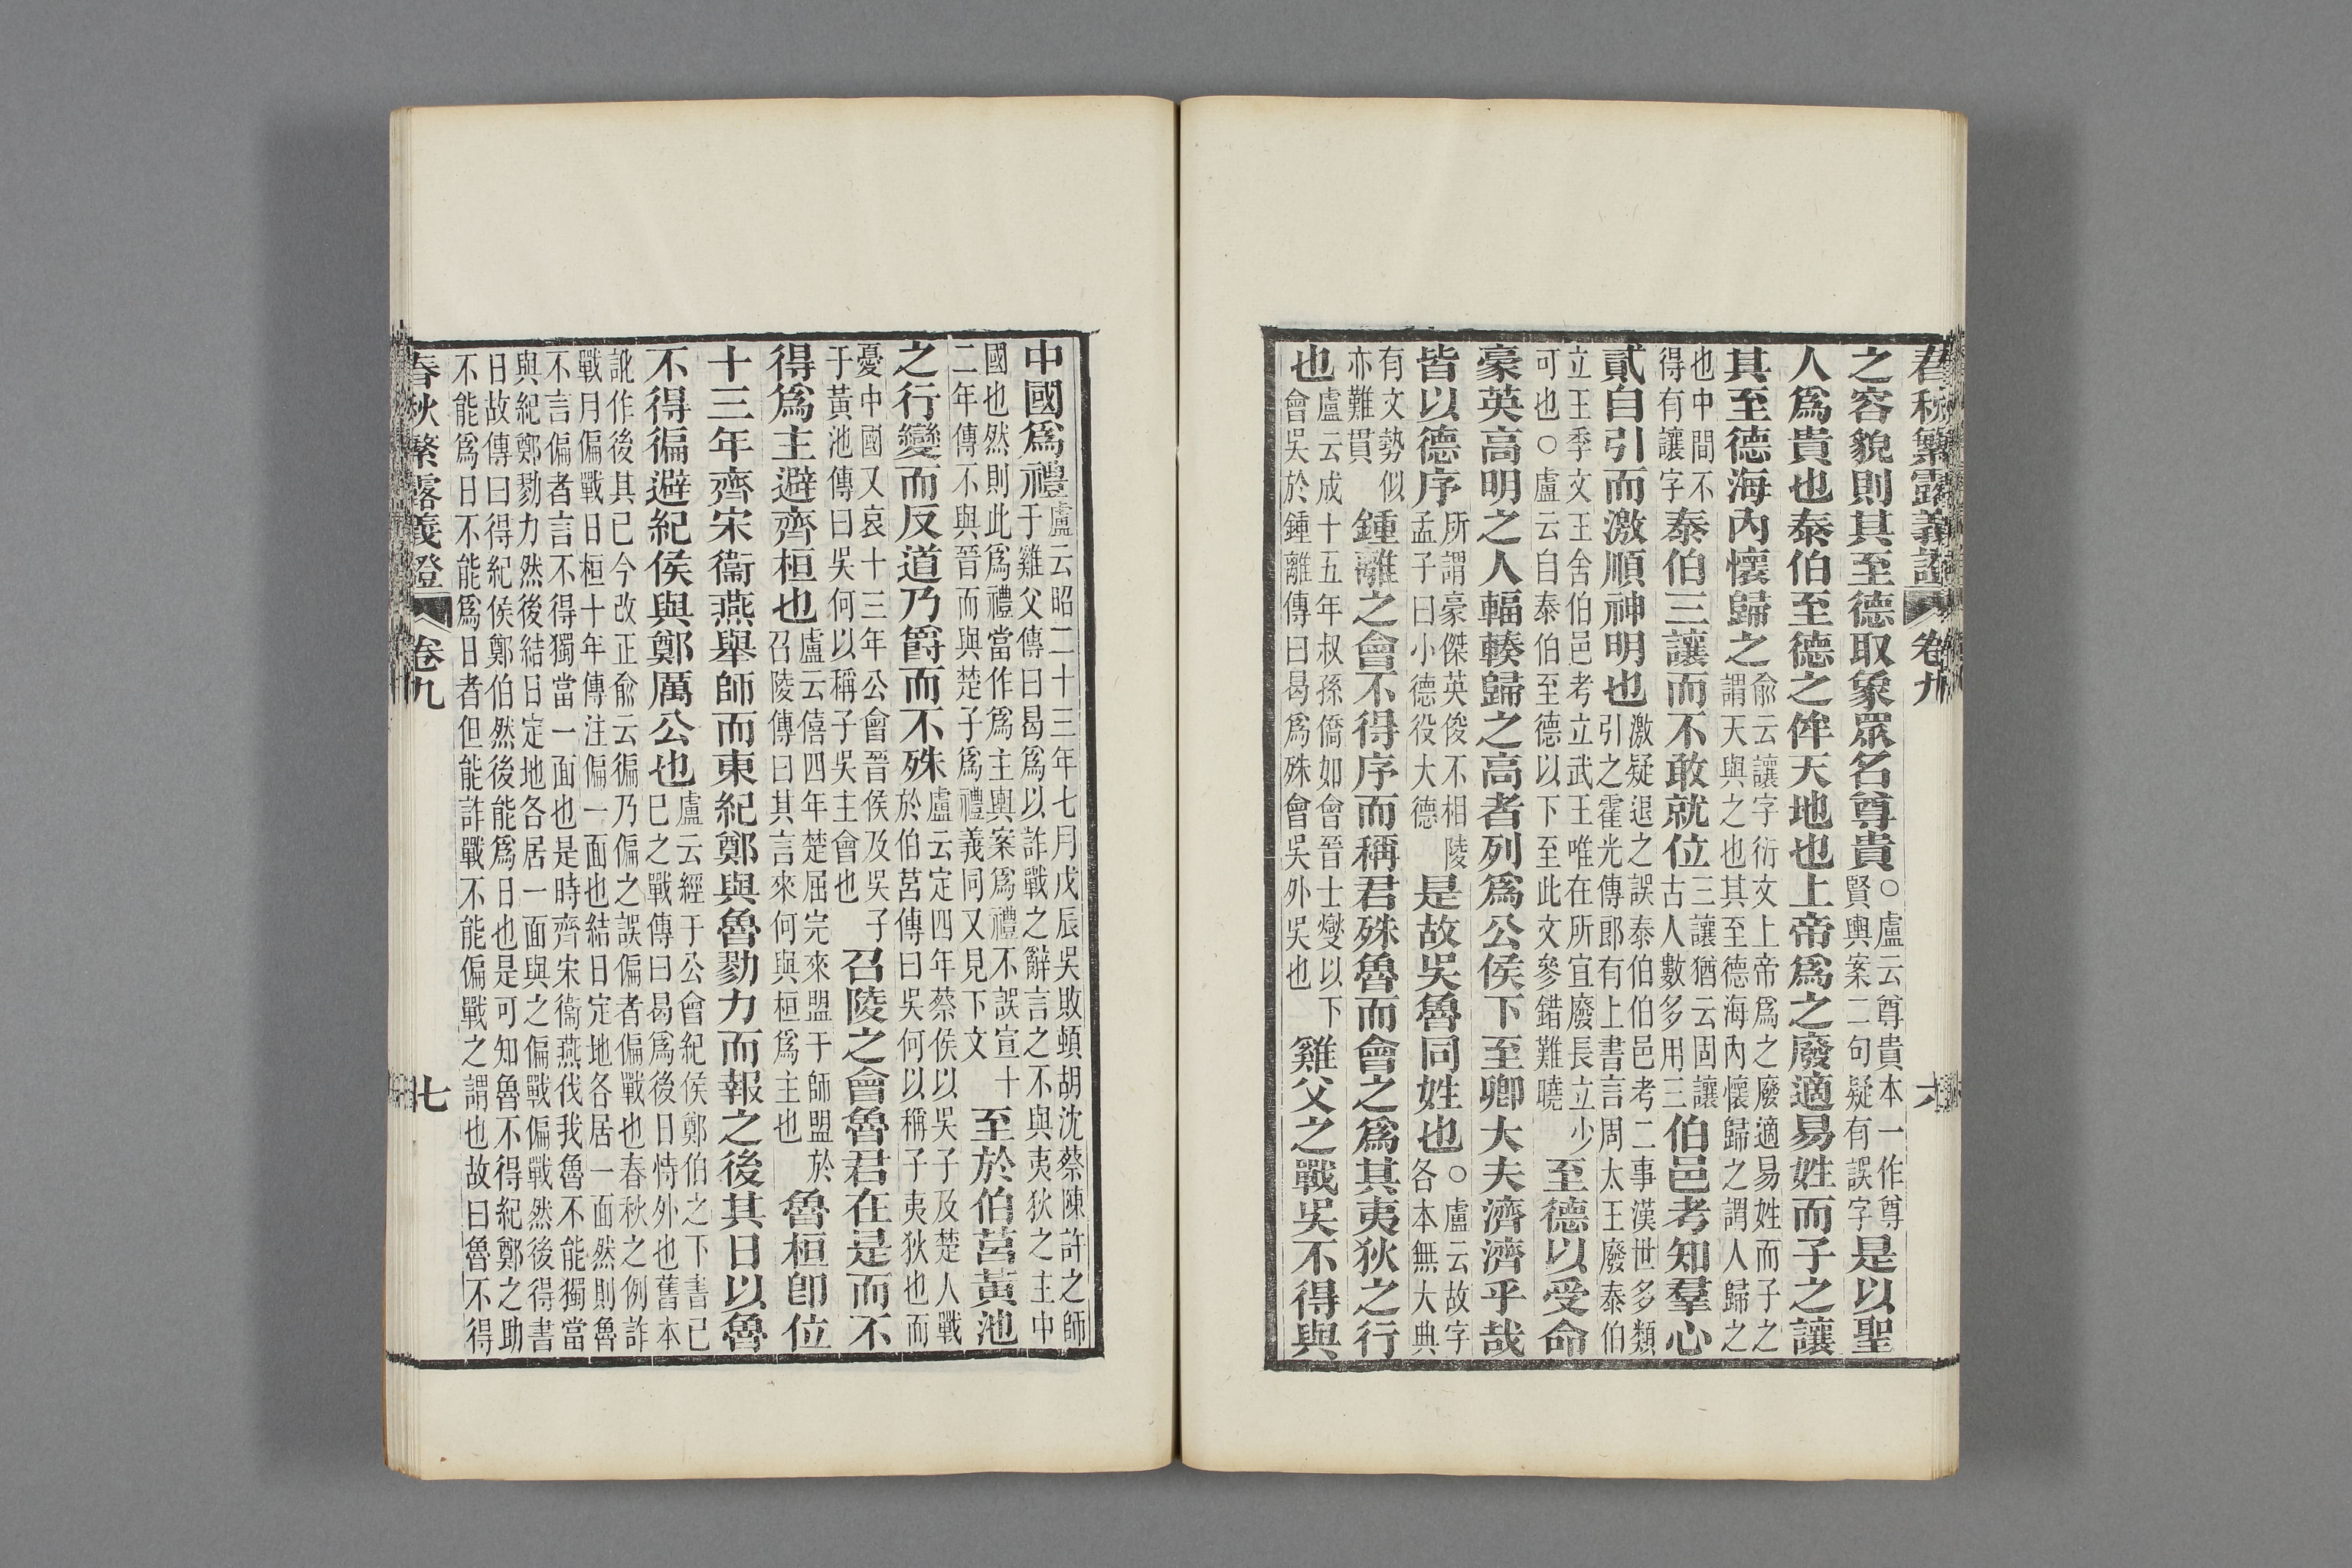 春秋繁露義證 卷九 六
之容貌則其至德取象眾名尊貴○盧云尊貴本一作尊賢輿案二句疑有誤字是以聖
人爲貴也泰伯至德之侔天地也上帝爲之廢適易姓而子之讓
其至德海內懷歸之俞云讓字衍文上帝爲之廢適易姓而子之謂天與之也其至德海內懷歸之謂人歸之
也中間不得有讓字泰伯三讓而不敢就位三讓猶云固讓古人數多用三伯邑考知羣心
貳自引而激順神明也激疑退之誤泰伯伯邑考二事漢世多類引之霍光傳郎有上書言周太王廢泰伯
立王季文王舍伯邑考立武王唯在所宜廢長立少可也○盧云自泰伯至德以下至此文參錯難曉至德以受命
豪英高明之人輻輳歸之高者列爲公侯下至卿大夫濟濟乎哉
皆以德序所謂豪傑英俊不相陵孟子曰小德役大德是故吳魯同姓也○盧云故字各本無大典
有文勢似亦難貫鍾離之會不得序而稱君殊魯而會之爲其夷狄之行
也盧云成十五年叔孫僑如會晉士燮以下會吳於鍾離傳曰曷爲殊會吳外吳也雞父之戰吳不得與
中國爲禮盧云昭二十三年七月戊辰吳敗頓胡沈蔡陳許之師于雞父傳曰曷爲以詐戰之辭言之不與夷狄之主中
國也然則此爲禮當作爲主輿案爲禮不誤宣十二年傳不與晉而與楚子爲禮義同又見下文至於伯莒黃池
之行變而反道乃爵而不殊盧云定四年蔡侯以吳子及楚人戰於伯莒傳曰吳何以稱子夷狄也而
憂中國又哀十三年公會晉侯及吳子于黃池傳曰吳何以稱子吳主會也召陵之會魯君在是而不
得爲主避齊桓也盧云僖四年楚屈完來盟于師盟於召陵傳曰其言來何與桓爲主也魯桓卽位
十三年齊宋衞燕舉師而東紀鄭與魯勠力而報之後其日以魯
不得徧避紀侯與鄭厲公也盧云經于公會紀侯鄭伯之下書已巳之戰傳曰曷爲後日恃外也舊本
訛作後其已今改正俞云徧乃偏之誤偏者偏戰也春秋之例詐戰月偏戰日桓十年傳注偏一面也結日定地各居一面然則魯
不言偏者言不得獨當一面也是時齊宋衞燕伐我魯不能獨當與紀鄭勠力然後結日定地各居一面與之偏戰偏戰然後得書
日故傳曰得紀侯鄭伯然後能爲日也是可知魯不得紀鄭之助不能爲日不能爲日者但能詐戰不能偏戰之謂也故曰魯不得
春秋繁露義證 卷九 七